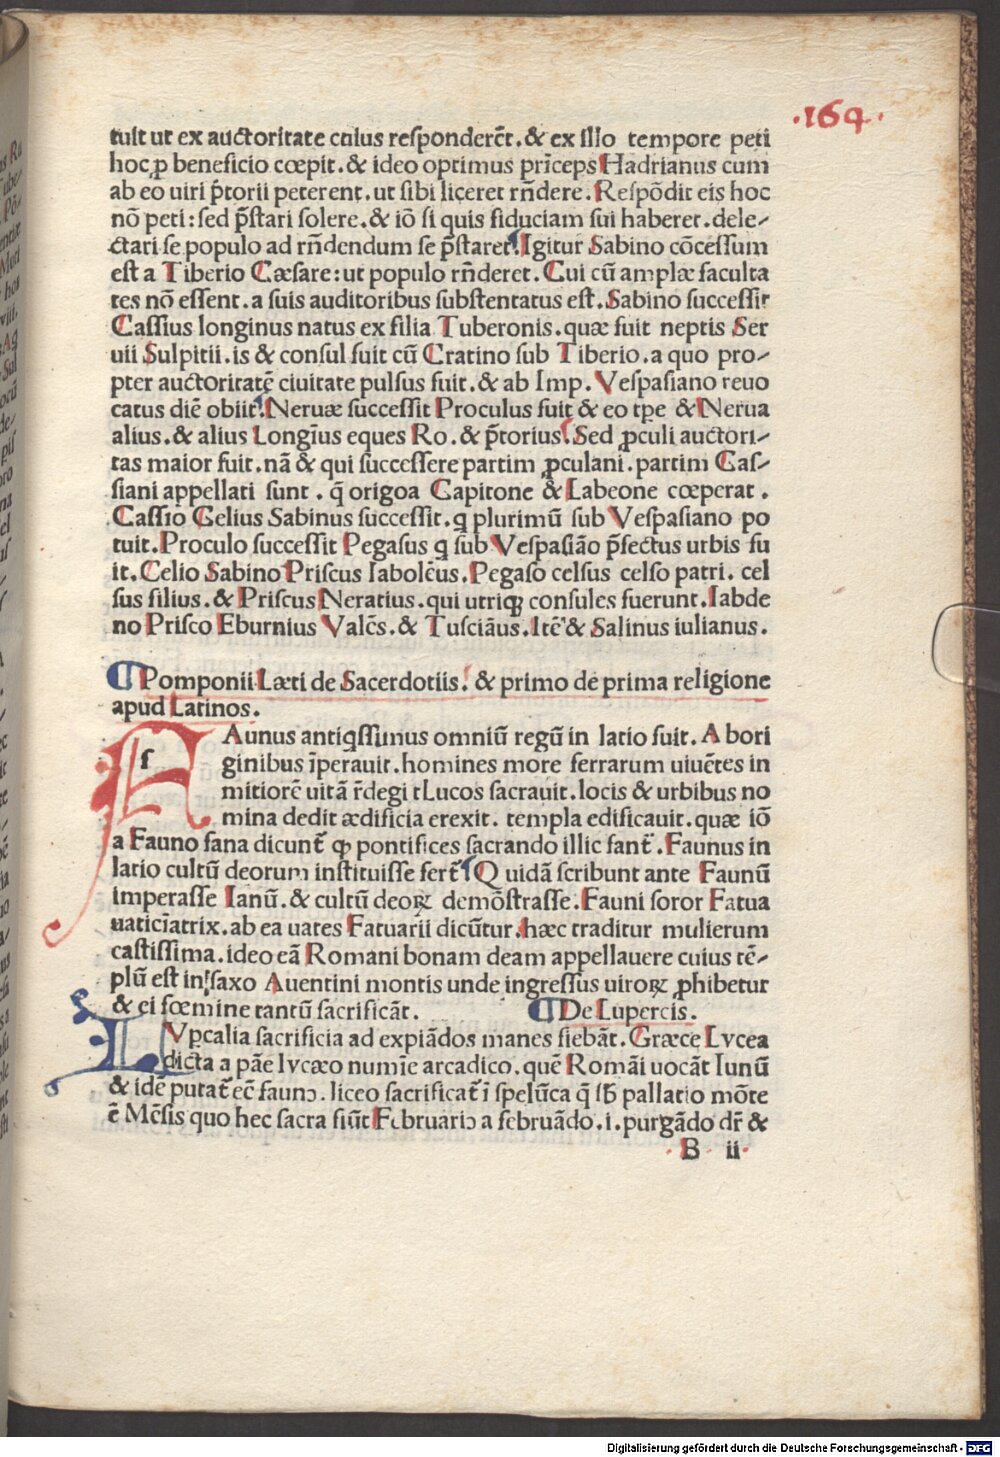 ·164·
tuit ut ex auctoritate cuius responderēt. & ex illo tempore peti
hoc ꝓ beneficio cœpit. & ideo optimus prīceps Hadrianus cum
ab eo uiri p̄torii peterent. ut sibi liceret rn̄dere. Respōdit eis hoc
nō peti: sed p̄stari solere. & iō si quis fiduciam sui haberet. dele⸗
ctari se populo ad rn̄dendum se p̄staret. Igitur Sabino cōcessum
est a Tiberio Cæsare: ut populo rn̄deret. Cui cū amplæ faculta
tes nō essent. a suis auditoribus substentatus est. Sabino successit
Cassius longinus natus ex filia Tuberonis. quæ fuit neptis Ser
uii Sulpitii. is & consul fuit cū Cratino sub Tiberio. a quo pro⸗
pter auctoritatē ciuitate pulsus fuit. & ab Imp. Vespasiano reuo
catus diē obiit. Neruæ successit Proculus fuit & eo tp̄e & Nerua
alius. & alius Longīus eques Ro. & p̄torius. Sed ꝓculi auctori⸗
tas maior fuit. nā & qui successere partim ꝓculani. partim Cas⸗
siani appellati sunt. q̄ origoa Capitone & Labeone cœperat.
Cassio Celius Sabinus successit. q plurimū sub Vespasiano po
tuit. Proculo successit Pegasus q sub Vespasiāo p̄fectus urbis fu
it. Celio Sabino Priscus Iabolēus. Pegaso celsus celso patri. cel
sus filius. & Priscus Neratius. qui utriqꝫ consules fuerunt. Iabde
no Prisco Eburnius Valēs. & Tusciāus. Itē & Salinus iulianus.
¶ Pomponii Læti de Sacerdotiis. & primo de prima religione
apud Latinos.
f Aunus antiqssimus omniū regū in latio fuit. A bori
ginibus īperauit. homines more ferrarum uiuētes in
mitiorē uitā r̄degi t Lucos sacrauit. locis & urbibus no
mina dedit ædificia erexit. templa edificauit. quæ iō
a Fauno fana dicunt̄ ꝙ pontifices sacrando illic fant̄. Faunus in
latio cultū deorum instituisse fert̄ Q uidā scribunt ante Faunū
imperasse Ianū. & cultū deoꝝ demōstrasse. Fauni soror Fatua
uaticīatrix. ab ea uates Fatuarii dicūtur. hæc traditur mulierum
castissima. ideo eā Romani bonam deam appellauere cuius tē⸗
plū est in saxo Auentini montis unde ingressus uiroꝝ ꝓhibetur
& ei fœmine tantū sacrificāt. ¶ De Lupercis.
L Vpcalia sacrificia ad expiādos manes fiebāt. Græce Lvcea
dicta a pāe lvcæo numīe arcadico. quē Romāi uocāt Iunū
& idē putat̄ eē fauno. liceo sacrificat̄ ī spelūca q̄ sƀ pallatio mōte
ē Mēsis quo hec sacra fiūt Februario a februādo. i. purgādo dr̄ &
B ii
Digitalisierung gefördert durch die Deutsche Forschungsgemeinschaft - DFG